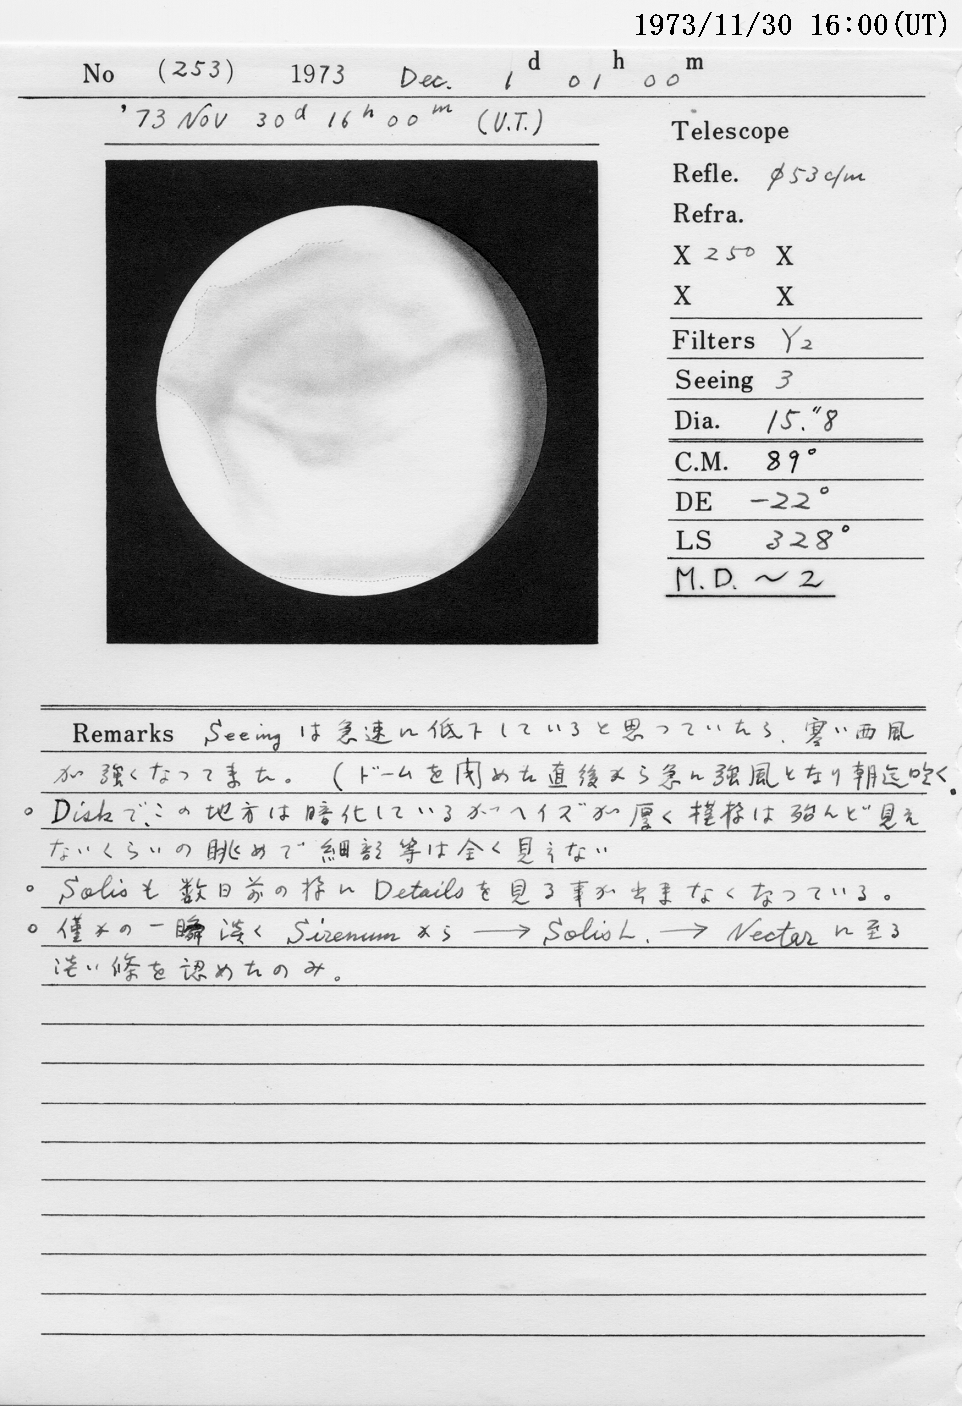 1973/11/30 16:00(UT)
No (253) 1973 Dec. 1d 01h 00m
'73 Nov 30d 16h 00m (U.T.)
Telescope
Refle. φ53c/m
Refra.
X 250 X
X X
Filters Y2
Seeing 3
Dia. 15."8
C.M. 89°
DE -22°
LS 328°
M.D. ~2
Remarks Seeingは急速に低下していると思っていたら、寒い西風
が強くなってきた。(ドームを閉めた直後から急に強風となり朝迄吹く.
○ Diskで、この地方は暗化しているがヘイズが厚く模様は殆んど見え
ないくらいの眺めで細部等は全く見えない
○ Solisも数日前の様にDetailsを見る事が出来なくなっている。
○ 僅かの一瞬淡くSirenumから→Solis L.→Nectarに至る
淡い條を認めたのみ。